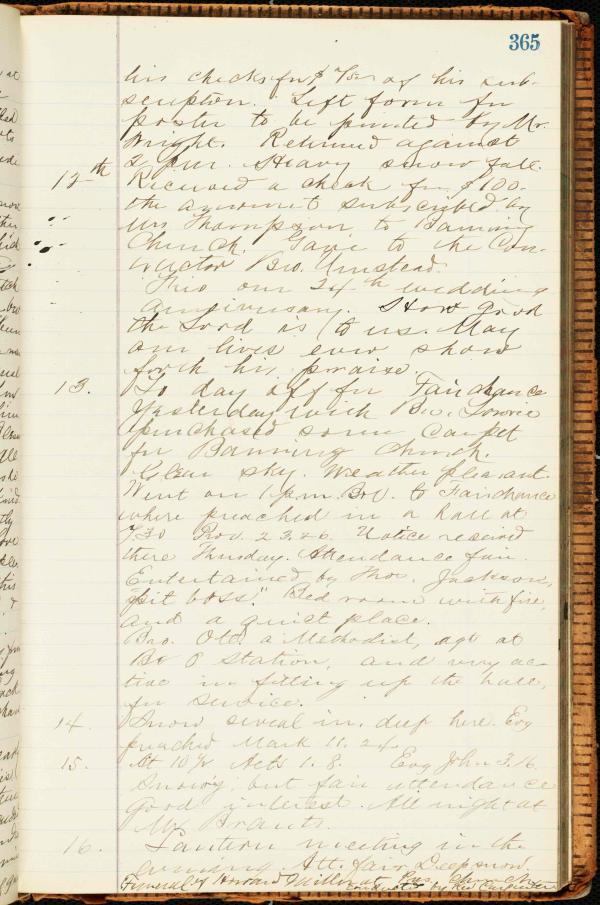 365
his checks for $ of his sub-
scription. Left form for
poster to be printed by Mr.
Wright. Returned against
2 p.m. Heavy snow fall.
12th Received a check for $100-
the amount subscribed by
Mrs Thompson to Banning
Church. Gave to the Con-
tractor Bro. Umstead.
This our 24th wedding
anniversary. How good
the Lord is to us. May
our lives ever show
forth his praise.
13. To day off for Fairchance
Yesterday with Bro.
purchased some Carpet
for Banning Church.
Clear sky. Weather pleasant.
Went on 1 p.m. B&O. to Fairchance
where preached in a hall at
7:30 Prov. 23.26. Notice received
there Thursday. Attendance fair.
Entertained by Thos. Jackson,
"pit boss." Bed room with fire,
and a quiet place.
Bro. Ott. a Methodist, agt at
B & O Station, and very ac-
tive in fitting up the hall,
for service.
14. Snow several in. deep here. Evg
preached Mark 11.24.
15. At 10½ Acts 1.8. Evg John 3.16
Snowy, but fair attendance
good interest. All night at
Mr Brants.
16. Lantern meeting in the
evening. Att. fair Deep snow.
Funeral of Howard at Pres. Church
conducted by Rev Carpenter